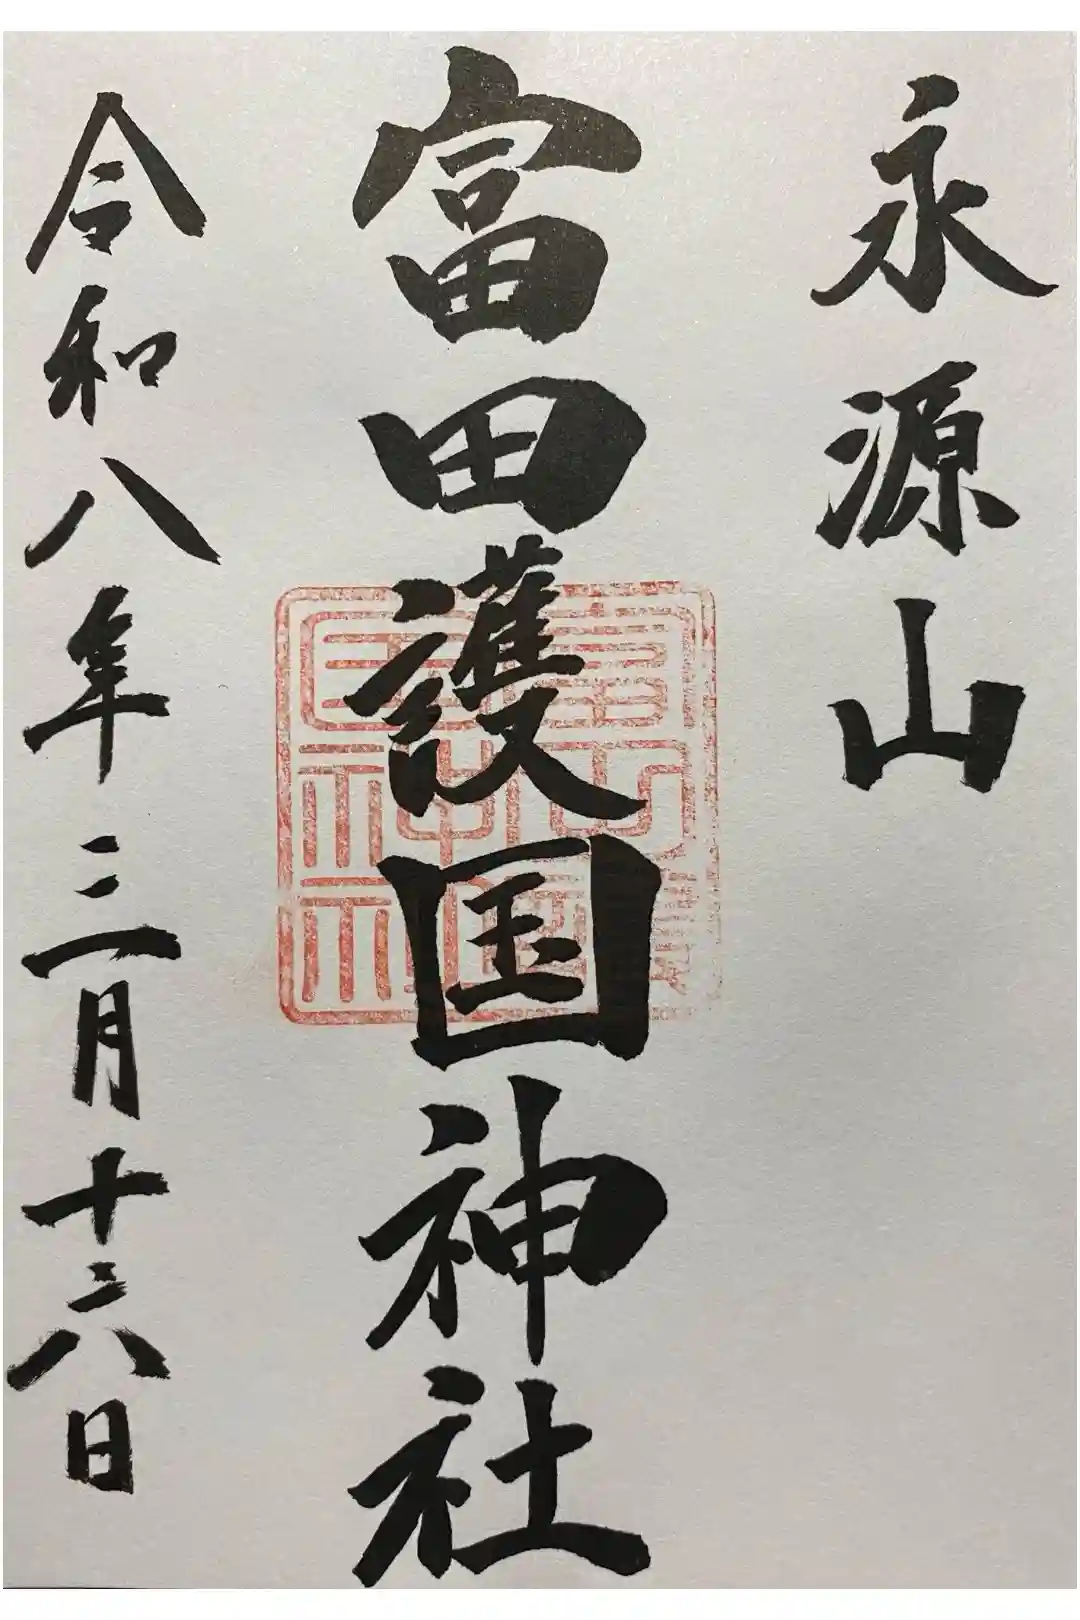 永源山
富田護国神社
令和八年三月十六日